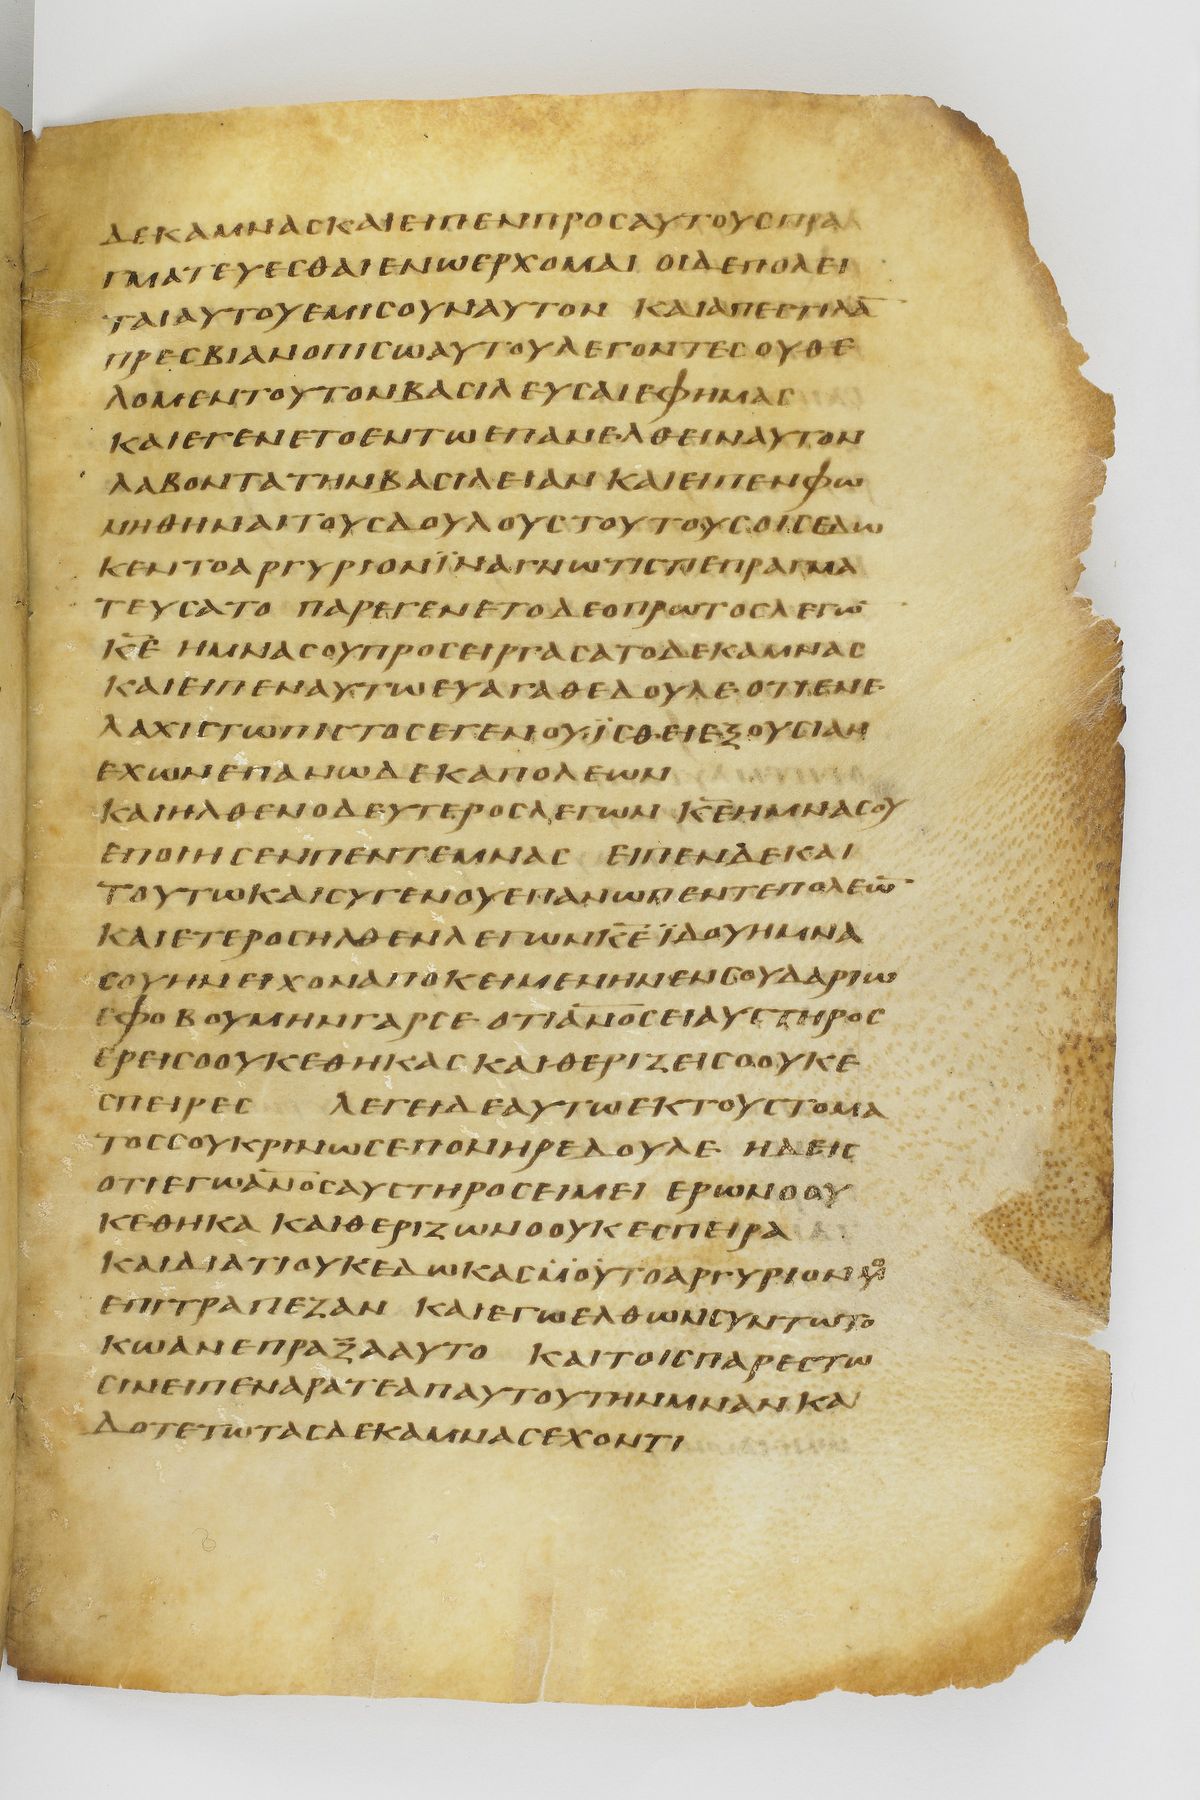 ΔΕΚΑΜΝΑϹΚΑΙΕΙΠΕΝΠΡΟϹΑΥΤΟΥϹΠΡΑ
ΓΜΑΤΕΥΕϹΘΑΙΕΝΩΕΡΧΟΜΑΙ ΟΙΔΕΠΟΛΕΙ
ΤΑΙΑΥΤΟΥΕΜΙϹΟΥΝΑΥΤΟΝ ΚΑΙΑΠΕϹΤΙΛΑ̅
ΠΡΕϹΒΙΑΝΟΠΙϹΩΑΥΤΟΥΛΕΓΟΝΤΕϹΟΥΘΕ
ΛΟΜΕΝΤΟΥΤΟΝΒΑϹΙΛΕΥϹΑΙΕΦΗΜΑϹ
ΚΑΙΕΓΕΝΕΤΟΕΝΤΩΕΠΑΝΕΛΘΕΙΝΑΥΤΟΝ
ΛΑΒΟΝΤΑΤΗΝΒΑϹΙΛΕΙΑΝ ΚΑΙΕΙΠΕΝΦΩ
ΝΗΘΗΝΑΙΤΟΥϹΔΟΥΛΟΥϹΤΟΥΤΟΥϹΟΙϹΕΔΩ
ΚΕΝΤΟΑΡΓΥΡΙΟΝΪΝΑΓΝΩΤΙϹΠΕΠΡΑΓΜΑ
ΤΕΥϹΑΤΟ ΠΑΡΕΓΕΝΕΤΟΔΕΟΠΡΩΤΟϹΛΕΓΩ̅
Κ̅Ε̅ ΗΜΝΑϹΟΥΠΡΟϹΕΙΡΓΑϹΑΤΟΔΕΚΑΜΝΑϹ
ΚΑΙΕΙΠΕΝΑΥΤΩΕΥΑΓΑΘΕΔΟΥΛΕ ΟΤΙΕΝΕ
ΛΑΧΙϹΤΩΠΙϹΤΟϹΕΓΕΝΟΥ ΪϹΘΕΙΕΞΟΥϹΙΑΝ
ΕΧΩΝΕΠΑΝΩΔΕΚΑΠΟΛΕΩΝ
ΚΑΙΗΛΘΕΝΟΔΕΥΤΕΡΟϹΛΕΓΩΝ Κ̅Ε̅ΗΜΝΑϹΟΥ
ΕΠΟΙΗϹΕΝΠΕΝΤΕΜΝΑϹ ΕΙΠΕΝΔΕΚΑΙ
ΤΟΥΤΩΚΑΙϹΥΓΕΝΟΥΕΠΑΝΩΠΕΝΤΕΠΟΛΕΩ̅
ΚΑΙΕΤΕΡΟϹΗΛΘΕΝΛΕΓΩΝΚ̅Ε̅ ΪΔΟΥΗΜΝΑ
ϹΟΥΗΝΕΙΧΟΝΑΠΟΚΕΙΜΕΝΗΝΕΝϹΟΥΔΑΡΙΩ
ΕΦΟΒΟΥΜΗΝΓΑΡϹΕ ΟΤΙΑ̅Ν̅Ο̅Ϲ̅ΕΙΑΥϹΤΗΡΟϹ
ΕΡΕΙϹΟΟΥΚΕΘΗΚΑϹΚΑΙΘΕΡΙΖΕΙϹΟΟΥΚΕ
ϹΠΕΙΡΕϹ ΛΕΓΕΙΔΕΑΥΤΩΕΚΤΟΥϹΤΟΜΑ
ΤΟϹϹΟΥΚΡΙΝΩϹΕΠΟΝΗΡΕΔΟΥΛΕ ΗΔΕΙϹ
ΟΤΙΕΓΩΑ̅Ν̅Ο̅Ϲ̅ΑΥϹΤΗΡΟϹΕΙΜΕΙ ΕΡΩΝΟΟΥ
ΚΕΘΗΚΑ ΚΑΙΘΕΡΙΖΩΝΟΟΥΚΕϹΠΕΙΡΑ
ΚΑΙΔΙΑΤΙΟΥΚΕΔΩΚΑϹΜΟΥΤΟΑΡΓΥΡΙΟΝ
ΕΠΙΤΡΑΠΕΖΑΝ ΚΑΙΕΓΩΕΛΘΩΝϹΥΝΤΩΤΟ
ΚΩΑΝΕΠΡΑΞΑΑΥΤΟ ΚΑΙΤΟΙϹΠΑΡΕϹΤΩ
ϹΙΝΕΙΠΕΝΑΡΑΤΕΑΠΑΥΤΟΥΤΗΝΜΝΑΝΚΑΙ
ΔΟΤΕΤΩΤΑϹΔΕΚΑΜΝΑϹΕΧΟΝΤΙ